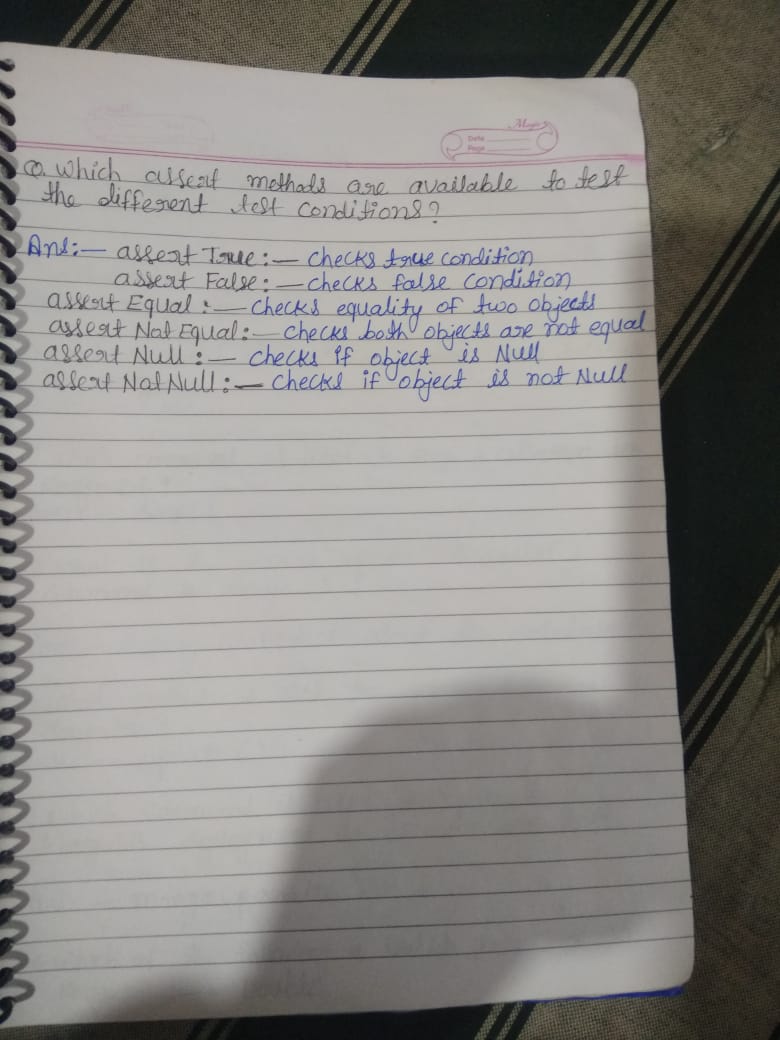 Magic
Date
Page
Q. Which assert methods are available to test
the different test conditions?
Ans:— assert True:— checks true condition
assert False:— checks false condition
assert Equal:— checks equality of two objects
assert Not Equal:— checks both objects are not equal
assert Null:— checks if object is Null
assert Not Null:— checks if object is not Null